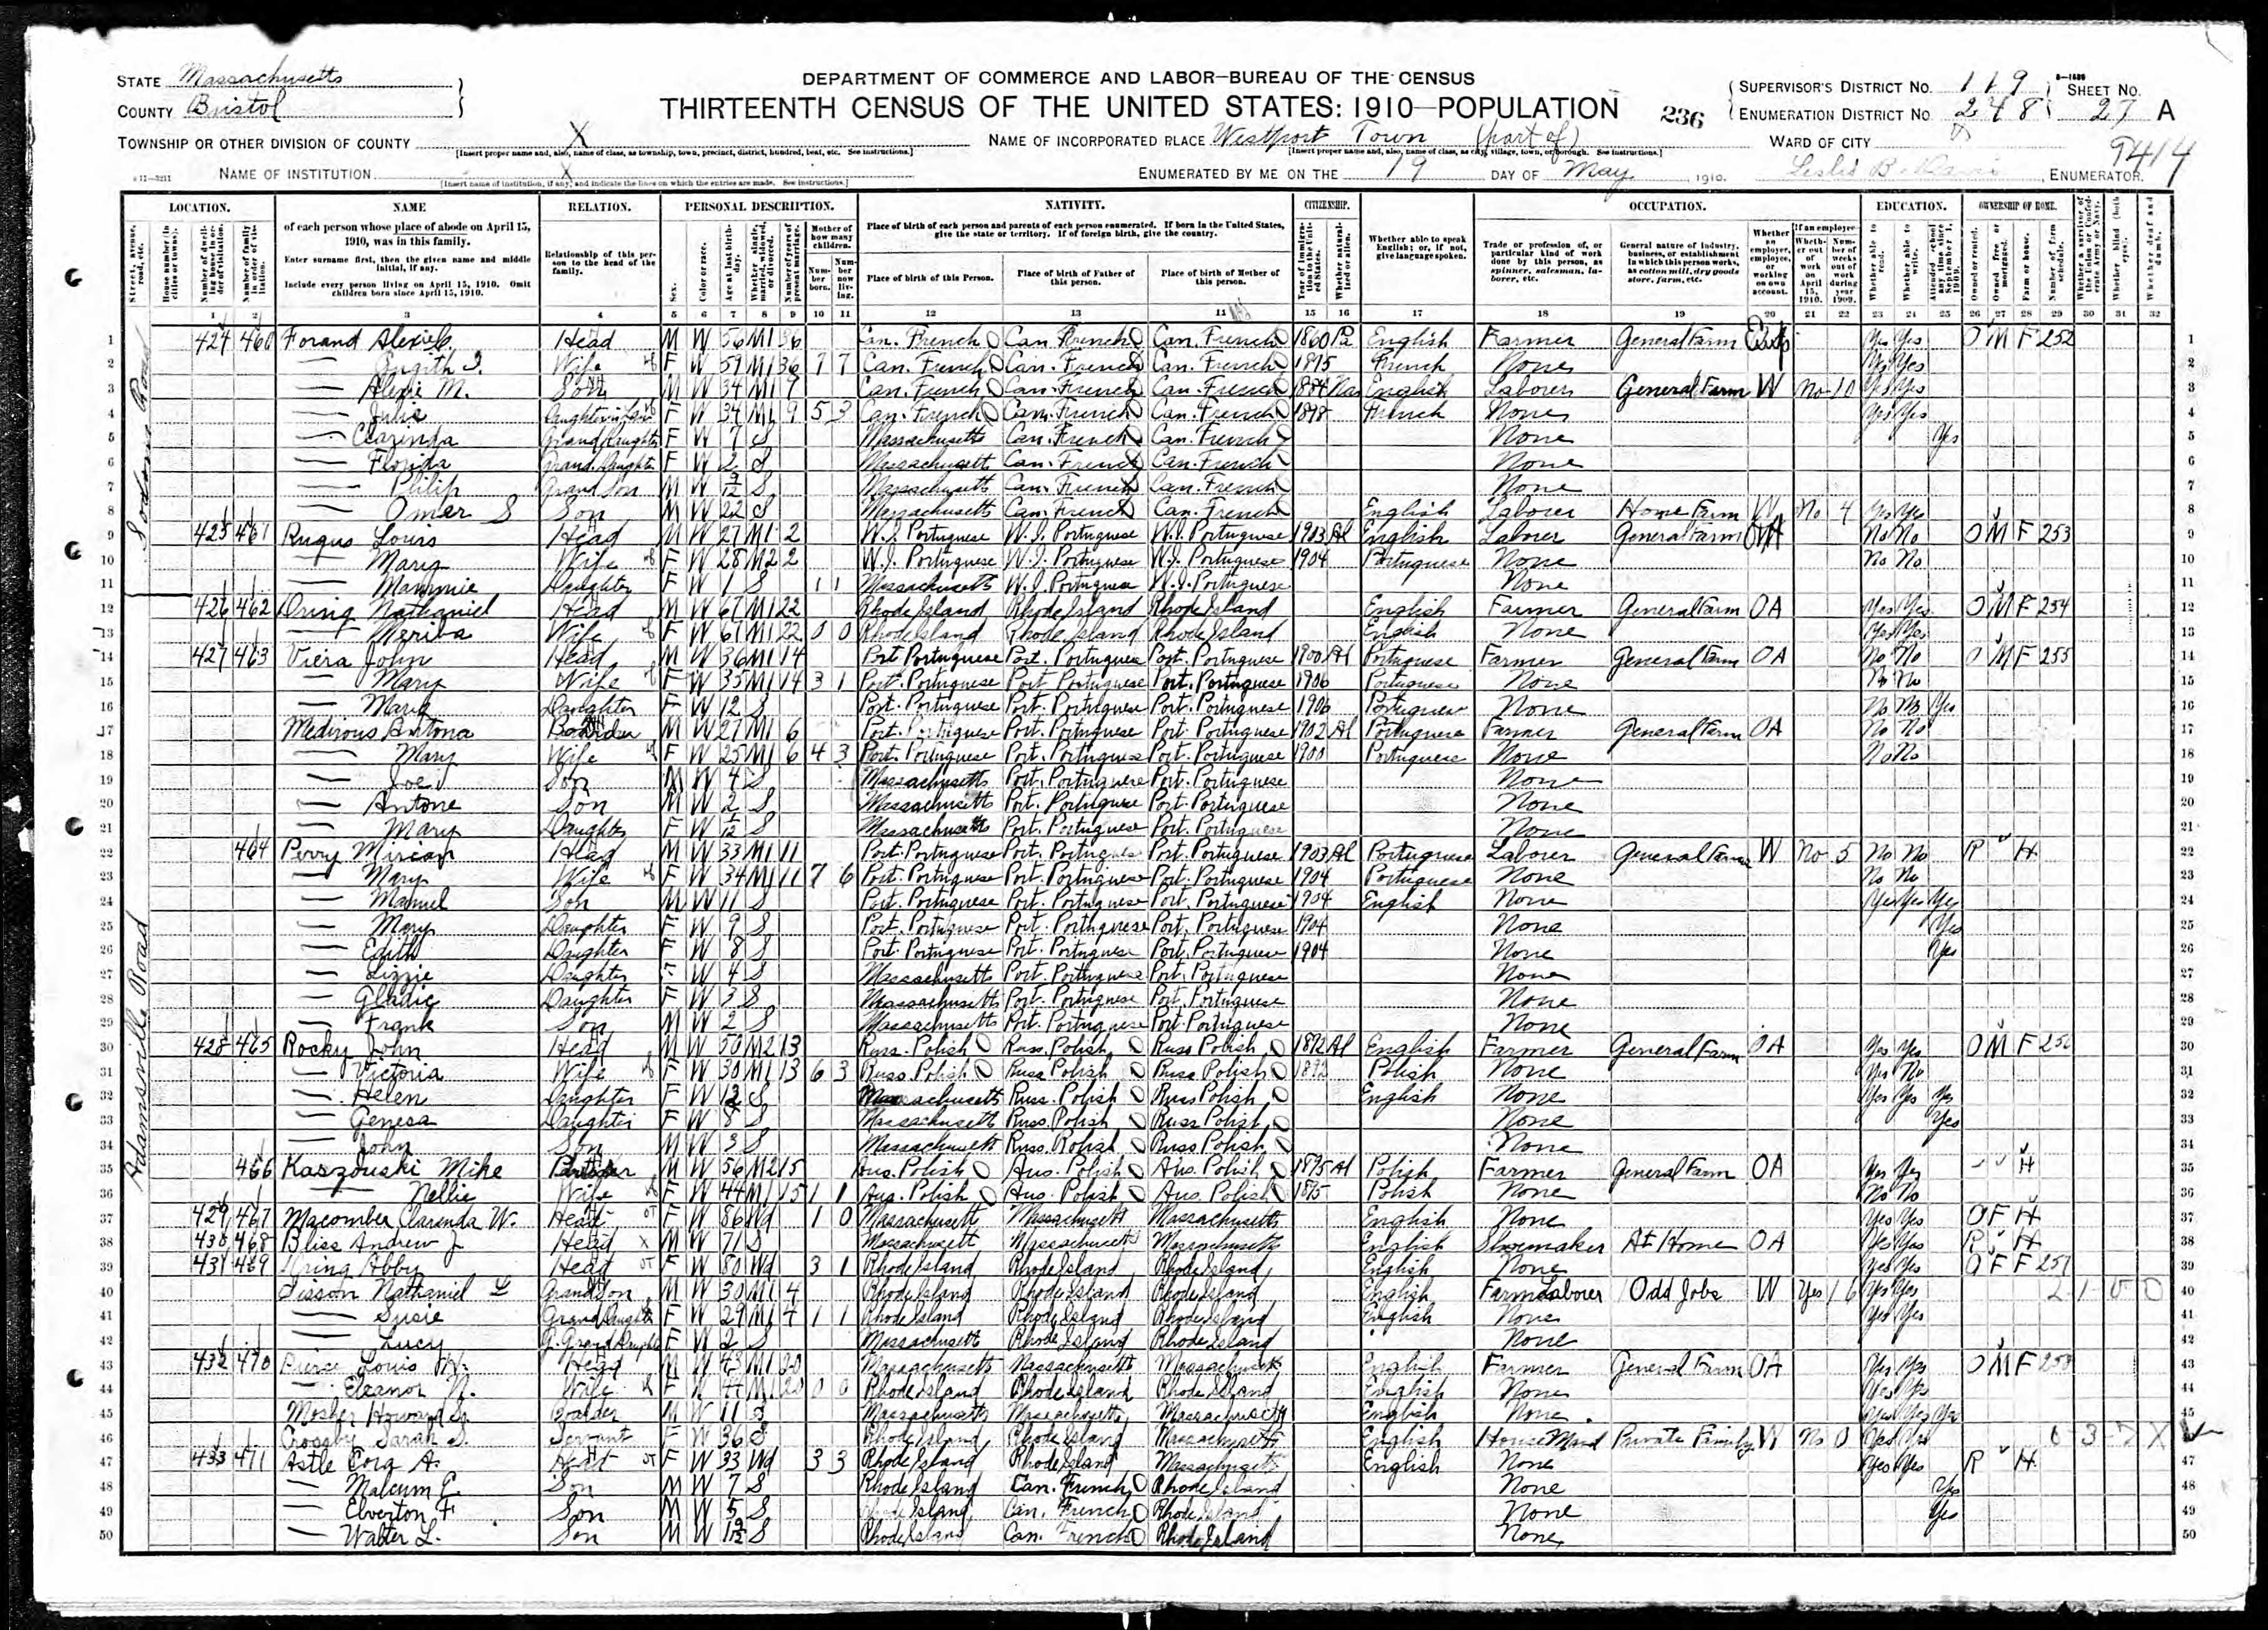 STATE Massachusetts
COUNTY Bristol
TOWNSHIP OR OTHER DIVISION OF COUNTY X
[Insert proper name and, also, name of class, as township, town, precinct, district, hundred, beat, etc. See instructions.]
NAME OF INSTITUTION X
[Insert name of institution, if any, and indicate the lines on which the entries are made. See instructions.]
DEPARTMENT OF COMMERCE AND LABOR—BUREAU OF THE CENSUS
THIRTEENTH CENSUS OF THE UNITED STATES: 1910—POPULATION
236
NAME OF INCORPORATED PLACE Westport Town (part of)
[Insert proper name and, also, name of class, as city, village, town, or borough. See instructions.]
ENUMERATED BY ME ON THE 19 DAY OF May, 1910.
SUPERVISOR'S DISTRICT No. 119 SHEET No.
ENUMERATION DISTRICT No. 248 27 A
WARD OF CITY X
9414
Leslie B. ENUMERATOR.
LOCATION. NAME RELATION. PERSONAL DESCRIPTION. NATIVITY. CITIZENSHIP. OCCUPATION. EDUCATION. OWNERSHIP OF HOME.
of each person whose place of abode on April 15, 1910, was in this family.
Enter surname first, then the given name and middle initial, if any.
Include every person living on April 15, 1910. Omit children born since April 15, 1910.
Relationship of this person to the head of the family.
Place of birth of each person and parents of each person enumerated. If born in the United States, give the state or territory. If of foreign birth, give the country.
Place of birth of this Person. Place of birth of Father of this person. Place of birth of Mother of this person.
Whether able to speak English; or, if not, give language spoken.
Trade or profession of, or particular kind of work done by this person, as spinner, salesman, laborer, etc.
General nature of industry, business, or establishment in which this person works, as cotton mill, dry goods store, farm, etc.
Sodom Road
1 424 460 Forand Alexie C. Head M W 56 M1 36 Can. French Can. French Can. French 1860 Pa English Farmer General Farm Emp Yes Yes O M F 252
2 — Wife F W 59 M1 36 7 7 Can. French Can. French Can. French 1875 French None No Yes
3 — Alexie M. Son M W 34 M1 9 Can. French Can. French Can. French 1884 Na English Laborer General Farm W No 10 Yes Yes
4 — Julie Daughter in law F W 34 M1 9 5 3 Can. French Can. French Can. French 1878 French None Yes Yes
5 — Clarinda Grand Daughter F W 7 S Massachusetts Can. French Can. French None Yes
6 — Florida Grand Daughter F W 2 S Massachusetts Can. French Can. French None
7 — Philip Grand Son M W 9/12 S Massachusetts Can. French Can. French None
8 — Omer S Son M W 22 S Massachusetts Can. French Can. French English Laborer Home Farm W No 4 Yes Yes
9 425 461 Rugus Louis Head M W 27 M1 2 W.I. Portuguese W.I. Portuguese W.I. Portuguese 1903 Al English Laborer General Farm No No O M F 253
10 — Mary Wife F W 28 M2 2 W.I. Portuguese W.I. Portuguese W.I. Portuguese 1904 Portuguese None No No
11 — Mammie Daughter F W 1 S 1 1 Massachusetts W.I. Portuguese W.I. Portuguese None
12 426 462 Dring Nathaniel Head M W 67 M1 22 Rhode Island Rhode Island Rhode Island English Farmer General Farm OA Yes Yes O M F 254
13 — Meriba Wife F W 61 M1 22 0 0 Rhode Island Rhode Island Rhode Island English None Yes Yes
Adamsville Road
14 427 463 Viera John Head M W 36 M1 14 Port Portuguese Port. Portuguese Port. Portuguese 1900 Al Portuguese Farmer General Farm OA No No O M F 255
15 — Mary Wife F W 35 M1 14 3 1 Port. Portuguese Port Portuguese Port. Portuguese 1906 Portuguese None No No
16 — Mary Daughter F W 12 S Port. Portuguese Port. Portuguese Port. Portuguese 1906 Portuguese None No No Yes
17 Medirous Antona Boarder M W 27 M1 6 Port. Portuguese Port. Portuguese Port. Portuguese 1902 Al Portuguese Farmer General Farm OA No No
18 — Mary Wife F W 25 M1 6 4 3 Port. Portuguese Port. Portuguese Port. Portuguese 1900 Portuguese None No No
19 — Joe Son M W 4 S Massachusetts Port. Portuguese Port. Portuguese None
20 — Antone Son M W 2 S Massachusetts Port. Portuguese Port. Portuguese None
21 — Mary Daughter F W 1/12 S Massachusetts Port. Portuguese Port. Portuguese None
22 464 Perry Head M W 33 M1 11 Port. Portuguese Port. Portuguese Port. Portuguese 1903 Al Portuguese Laborer General Farm W No 5 No No R H
23 — Mary Wife F W 34 M1 11 7 6 Port. Portuguese Port. Portuguese Port. Portuguese 1904 Portuguese None No No
24 — Manuel Son M W 11 S Port. Portuguese Port. Portuguese Port. Portuguese 1904 English None Yes Yes Yes
25 — Mary Daughter F W 9 S Port. Portuguese Port. Portuguese Port. Portuguese 1904 None Yes
26 — Edith Daughter F W 8 S Port. Portuguese Port. Portuguese Port. Portuguese 1904 None Yes
27 — Lizzie Daughter F W 4 S Massachusetts Port. Portuguese Port. Portuguese None
28 — Gladie Daughter F W 3 S Massachusetts Port. Portuguese Port. Portuguese None
29 — Frank Son M W 2 S Massachusetts Port. Portuguese Port. Portuguese None
30 428 465 Rocky John Head M W 50 M2 13 Russ. Polish Russ. Polish Russ Polish 1892 Al English Farmer General Farm OA Yes Yes O M F 256
31 — Victoria Wife F W 30 M1 13 6 3 Russ. Polish Russ Polish Russ Polish 1892 Polish None Yes No
32 — Helen Daughter F W 12 S Massachusetts Russ. Polish Russ Polish English None Yes Yes Yes
33 — Genesa Daughter F W 8 S Massachusetts Russ. Polish Russ Polish None Yes
34 — John Son M W 3 S Massachusetts Russ. Polish Russ Polish None
35 466 Kaszouski Mike Partner M W 56 M2 15 Aus. Polish Aus. Polish Aus. Polish 1895 Al Polish Farmer General Farm OA Yes Yes H
36 — Nellie Wife F W 44 M1 15 1 1 Aus. Polish Aus. Polish Aus. Polish 1895 Polish None No No
37 429 467 Macomber Clarinda W. Head F W 86 Wd 1 0 Massachusetts Massachusetts Massachusetts English None Yes Yes O F H
38 430 468 Bliss Andrew J Head M W 71 S Massachusetts Massachusetts Massachusetts English Shoemaker At Home OA Yes Yes R H
39 431 469 Dring Abby Head F W 80 Wd 3 1 Rhode Island Rhode Island Rhode Island English None Yes Yes O F F 257
40 Sisson Nathaniel L Grand Son M W 30 M1 4 Rhode Island Rhode Island Rhode Island English Farm Laborer Odd Jobs W Yes 16 Yes Yes 2 1 0 0
41 — Susie Grand Daughter F W 29 M1 4 1 1 Rhode Island Rhode Island Rhode Island English None Yes Yes
42 — Lucy G. Grand Daughter F W 2 S Massachusetts Rhode Island Rhode Island None
43 432 470 Pierce Louis W. Head M W 43 M1 20 Massachusetts Massachusetts Massachusetts English Farmer General Farm OA Yes Yes O M F 258
44 — Eleanor N. Wife F W 44 M1 20 0 0 Rhode Island Rhode Island Rhode Island English None Yes Yes
45 Mosher Howard Boarder M W 11 S Massachusetts Massachusetts Massachusetts English None Yes Yes Yes
46 Crossby Sarah S. Servant F W 36 S Rhode Island Rhode Island Massachusetts English House Maid Private Family W No 0 Yes Yes 6 3 7 X
47 433 471 Astle Cora A. Head F W 33 Wd 3 3 Rhode Island Rhode Island Massachusetts English None Yes Yes R H
48 — Malcum E. Son M W 7 S Rhode Island Can. French Rhode Island None Yes
49 — Elverton F. Son M W 5 S Rhode Island Can. French Rhode Island None Yes
50 — Walter L. Son M W 1 9/12 S Rhode Island Can. French Rhode Island None